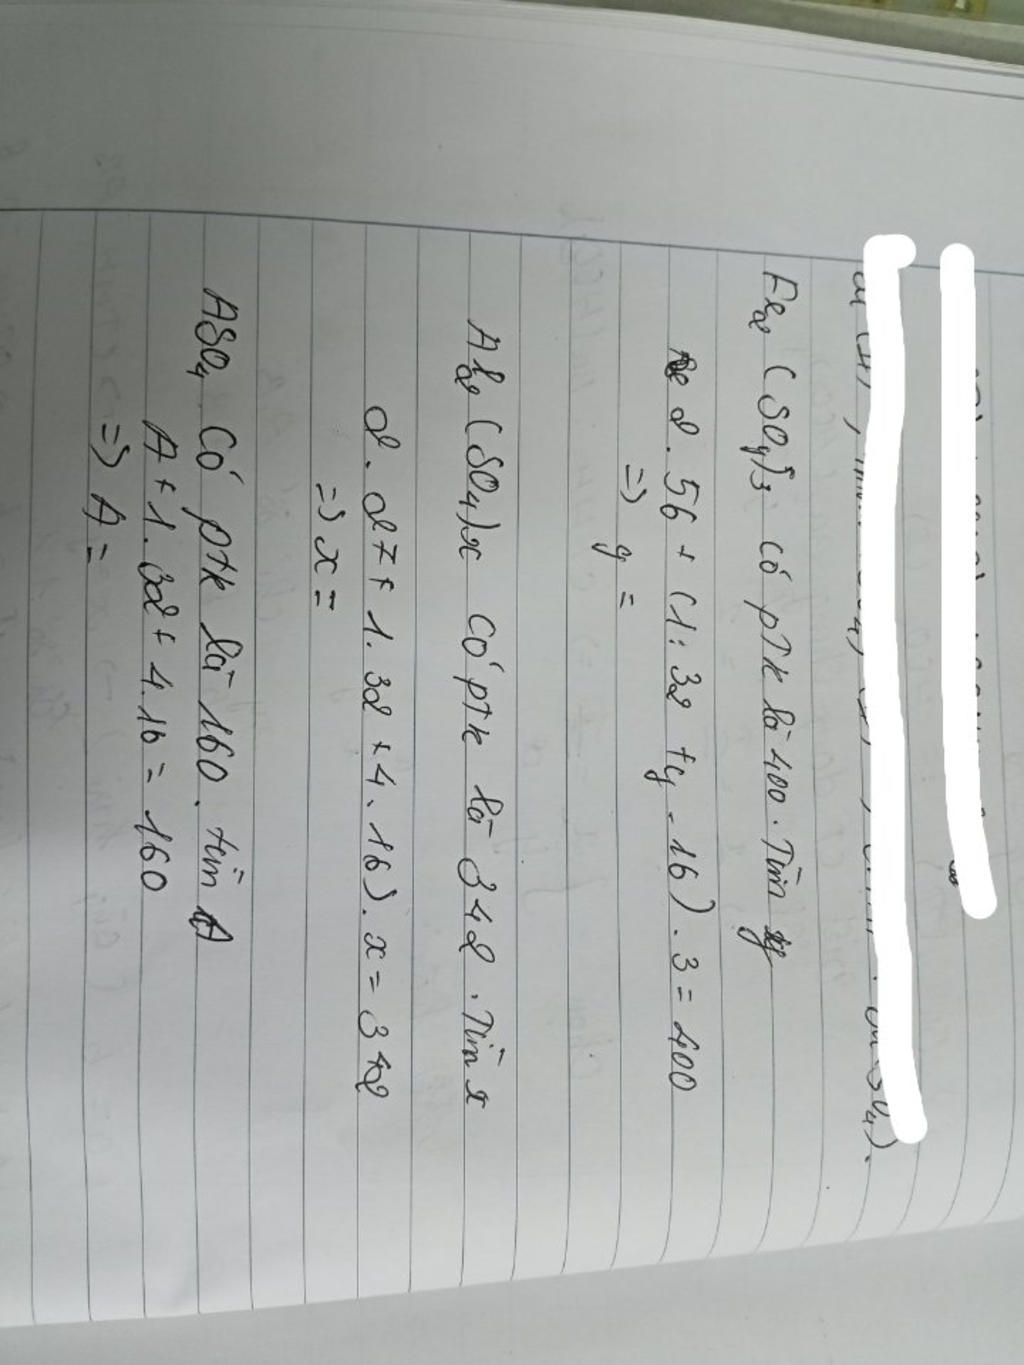 Fe2 (SOy)3 có pTK là 400. Tìm y
2.56 + (1.32 + y.16).3 = 400
=> y =
Al2 (SO4)x có ptk là 342. Tìm x
2.27 + 1.32 + 4.16).x = 342
=> x =
ASO4 có ptk là 160. tìm A
A + 1.32 + 4.16 = 160
=> A =